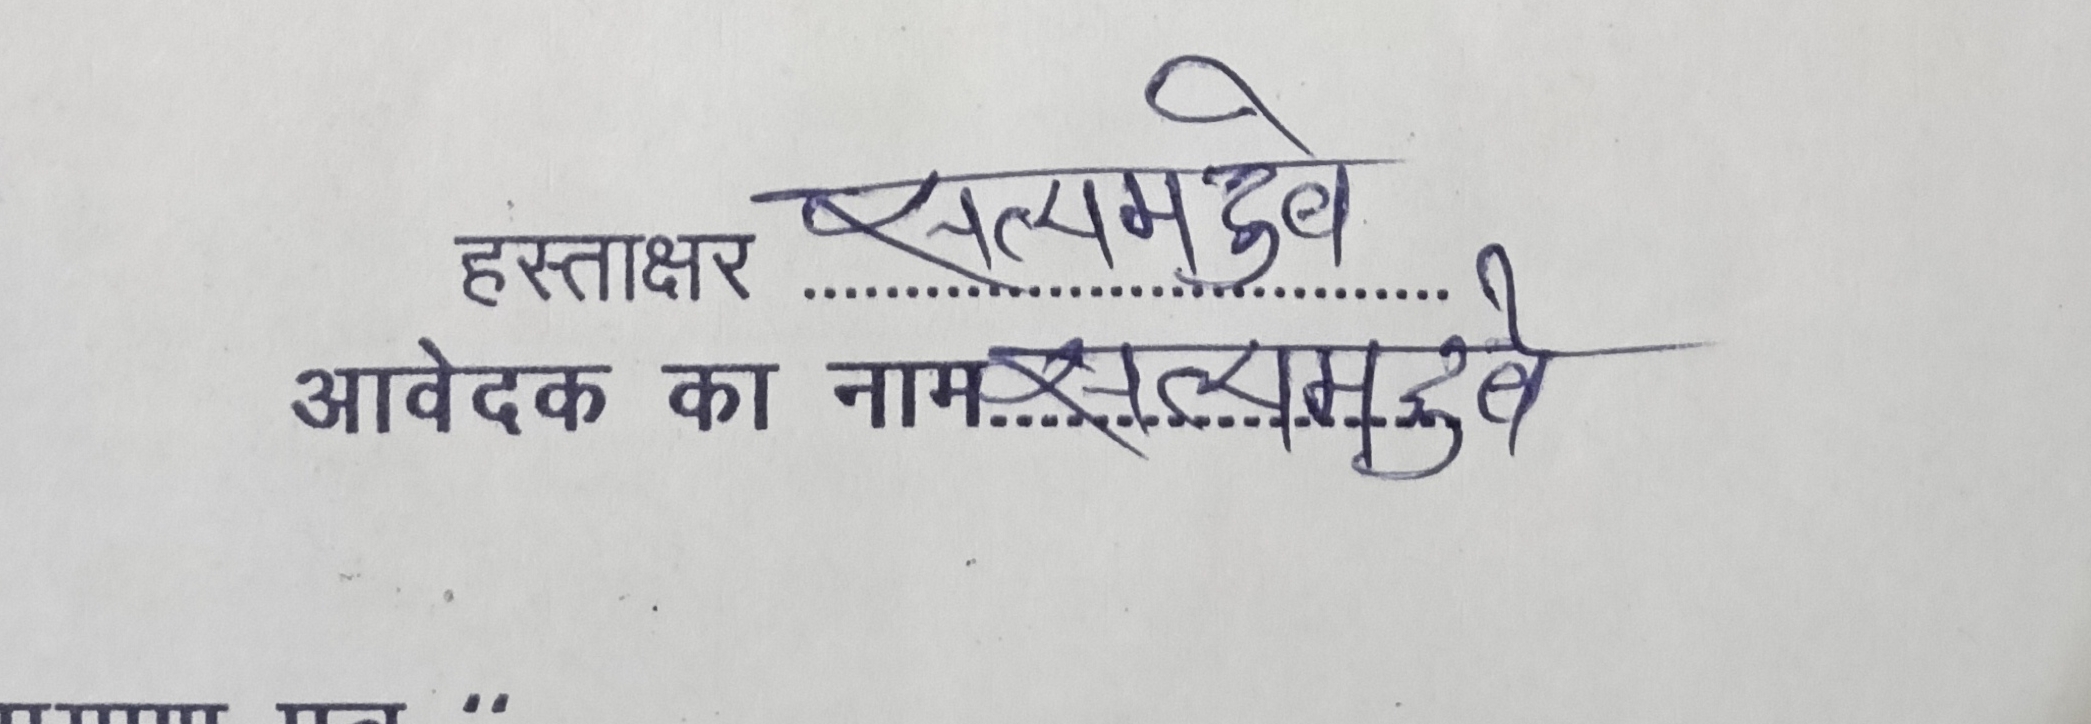 हस्ताक्षर सत्यम दुबे
आवेदक का नाम सत्यम दुबे